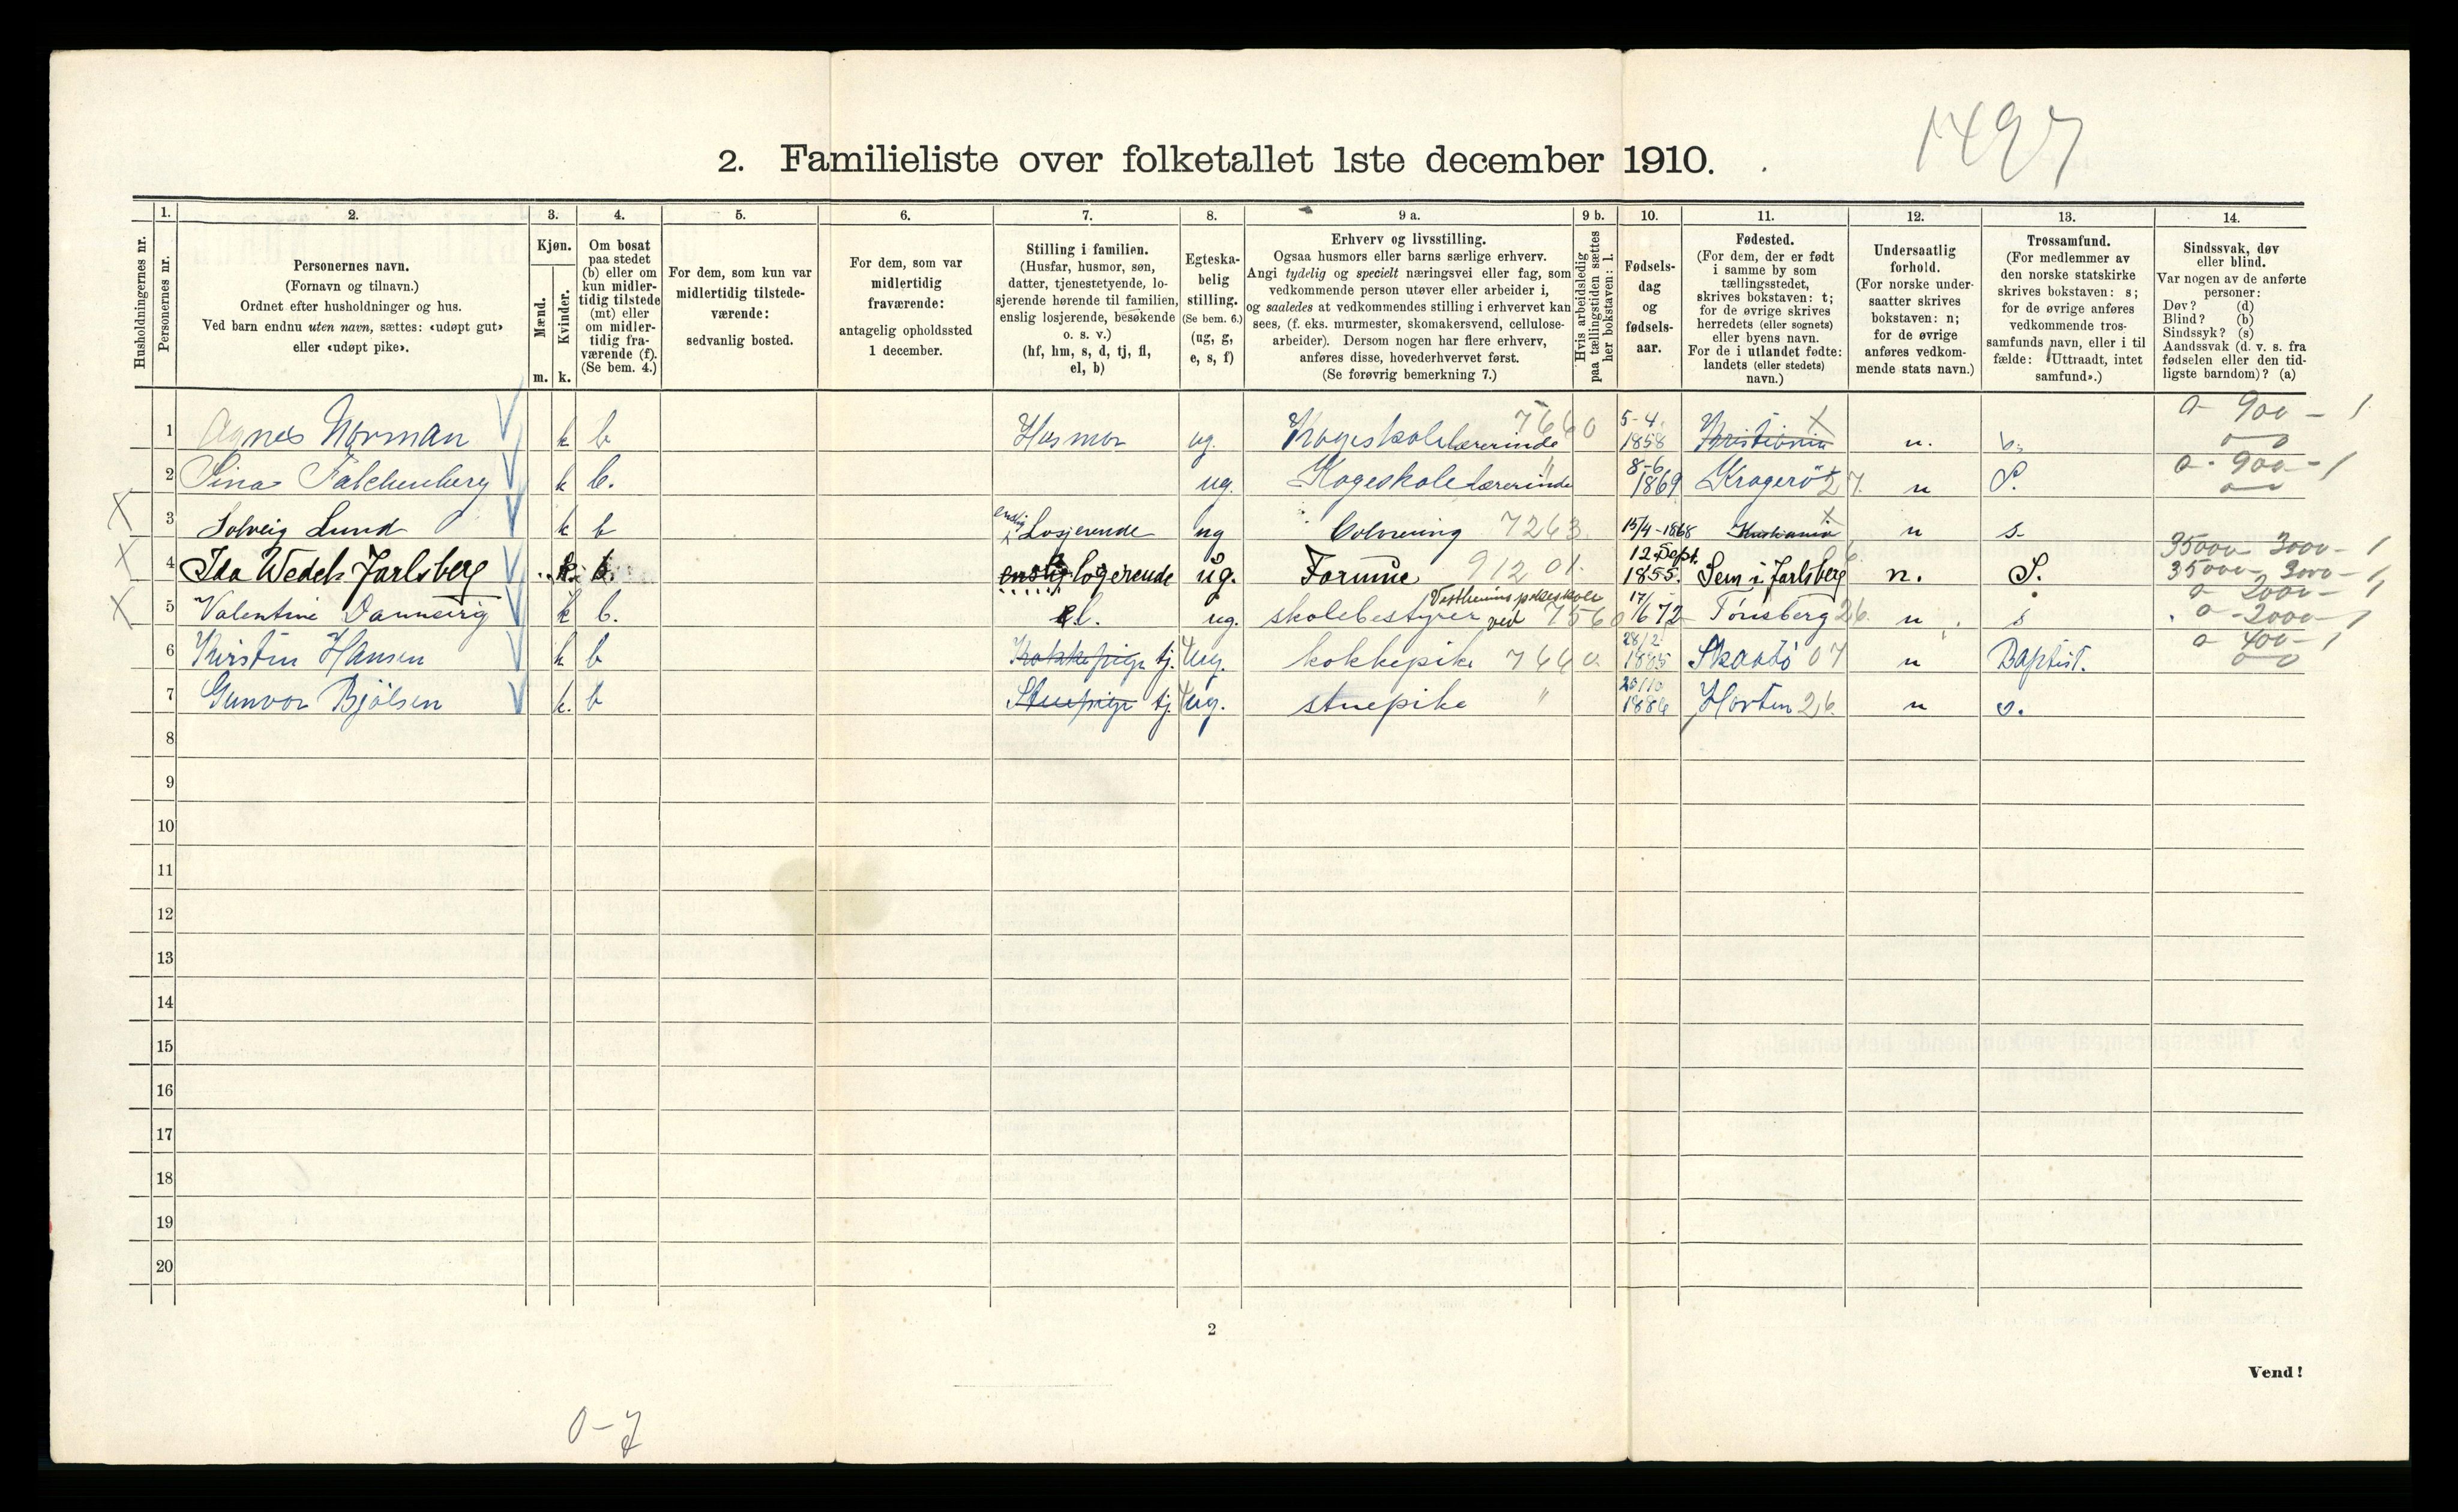 1497
2. Familieliste over folketallet 1ste december 1910.
1. 2. 3. 4. 5. 6. 7. 8. 9 a. 9 b. 10. 11. 12. 13. 14.
Husholdningernes nr.
Personernes nr.
Personernes navn.
(Fornavn og tilnavn.)
Ordnet efter husholdninger og hus.
Ved barn endnu uten navn, sættes: «udøpt gut»
eller «udøpt pike».
Kjøn.
Mænd.
Kvinder.
m. k.
Om bosat
paa stedet
(b) eller om
kun midler-
tidig tilstede
(mt) eller
om midler-
tidig fra-
værende (f).
(Se bem. 4.)
For dem, som kun var
midlertidig tilstede-
værende:
sedvanlig bosted.
For dem, som var
midlertidig
fraværende:
antagelig opholdssted
1 december.
Stilling i familien.
(Husfar, husmor, søn,
datter, tjenestetyende, lo-
sjerende hørende til familien,
enslig losjerende, besøkende
o. s. v.)
(hf, hm, s, d, tj, fl,
el, b)
Egteska-
belig
stilling.
(Se bem. 6.)
(ug, g,
e, s, f)
Erhverv og livsstilling.
Ogsaa husmors eller barns særlige erhverv.
Angi tydelig og specielt næringsvei eller fag, som
vedkommende person utøver eller arbeider i,
og saaledes at vedkommendes stilling i erhvervet kan
sees, (f. eks. murmester, skomakersvend, cellulose-
arbeider). Dersom nogen har flere erhverv,
anføres disse, hovederhvervet først.
(Se forøvrig bemerkning 7.)
Hvis arbeidsledig
paa tællingstiden sættes
her bokstaven: l.
Fødsels-
dag
og
fødsels-
aar.
Fødested.
(For dem, der er født
i samme by som
tællingsstedet,
skrives bokstaven: t;
for de øvrige skrives
herredets (eller sognets)
eller byens navn.
For de i utlandet fødte:
landets (eller stedets)
navn.)
Undersaatlig
forhold.
(For norske under-
saatter skrives
bokstaven: n;
for de øvrige
anføres vedkom-
mende stats navn.)
Trossamfund.
(For medlemmer av
den norske statskirke
skrives bokstaven: s;
for de øvrige anføres
vedkommende tros-
samfunds navn, eller i til
fælde: «Uttraadt, intet
samfund».)
Sindssvak, døv
eller blind.
Var nogen av de anførte
personer:
Døv? (d)
Blind? (b)
Sindssyk? (s)
Aandssvak (d. v. s. fra
fødselen eller den tid-
ligste barndom)? (a)
1 Agnes Norman k b Husmor ug. Kogeskolelærerinde 7660 5-4. 1858 Kristiania n. s. 0 - 900 - 1
2 Sina Falchenberg k b. ug. Kogeskolelærerinde " 8-6 1869 Kragerö 27. n S. 0 - 900 - 1
3 Solveig Lund k b enslig Losjerende ug 7263 15/4-1868 Kristiania n s.
4 Ida Wedel-Jarlsberg k. b enslig logerende ug. Formue 912 01. 12 Sept. 1855. Sem i Jarlsberg n. S. 35000 3000 - 1
5 Valentine Dannevig k b. el. ug. skolebestyrer ved 7560 17/6 72 Tönsberg 26. n s 0 - 2000 - 1
6 Kirstin Hansen k b Kokkepige tj. ug. kokkepike 7660 28/2 1885 Skaatö 07 n Baptist. 0 400 - 1
7 Gunvor Bjölsen k. b Stuepige tj. ug. stuepike " 20/10 1886 Horten 26. n s.
8
9
10
11
12
13
14
15
16
17
18
19
20
2
Vend!
0-7